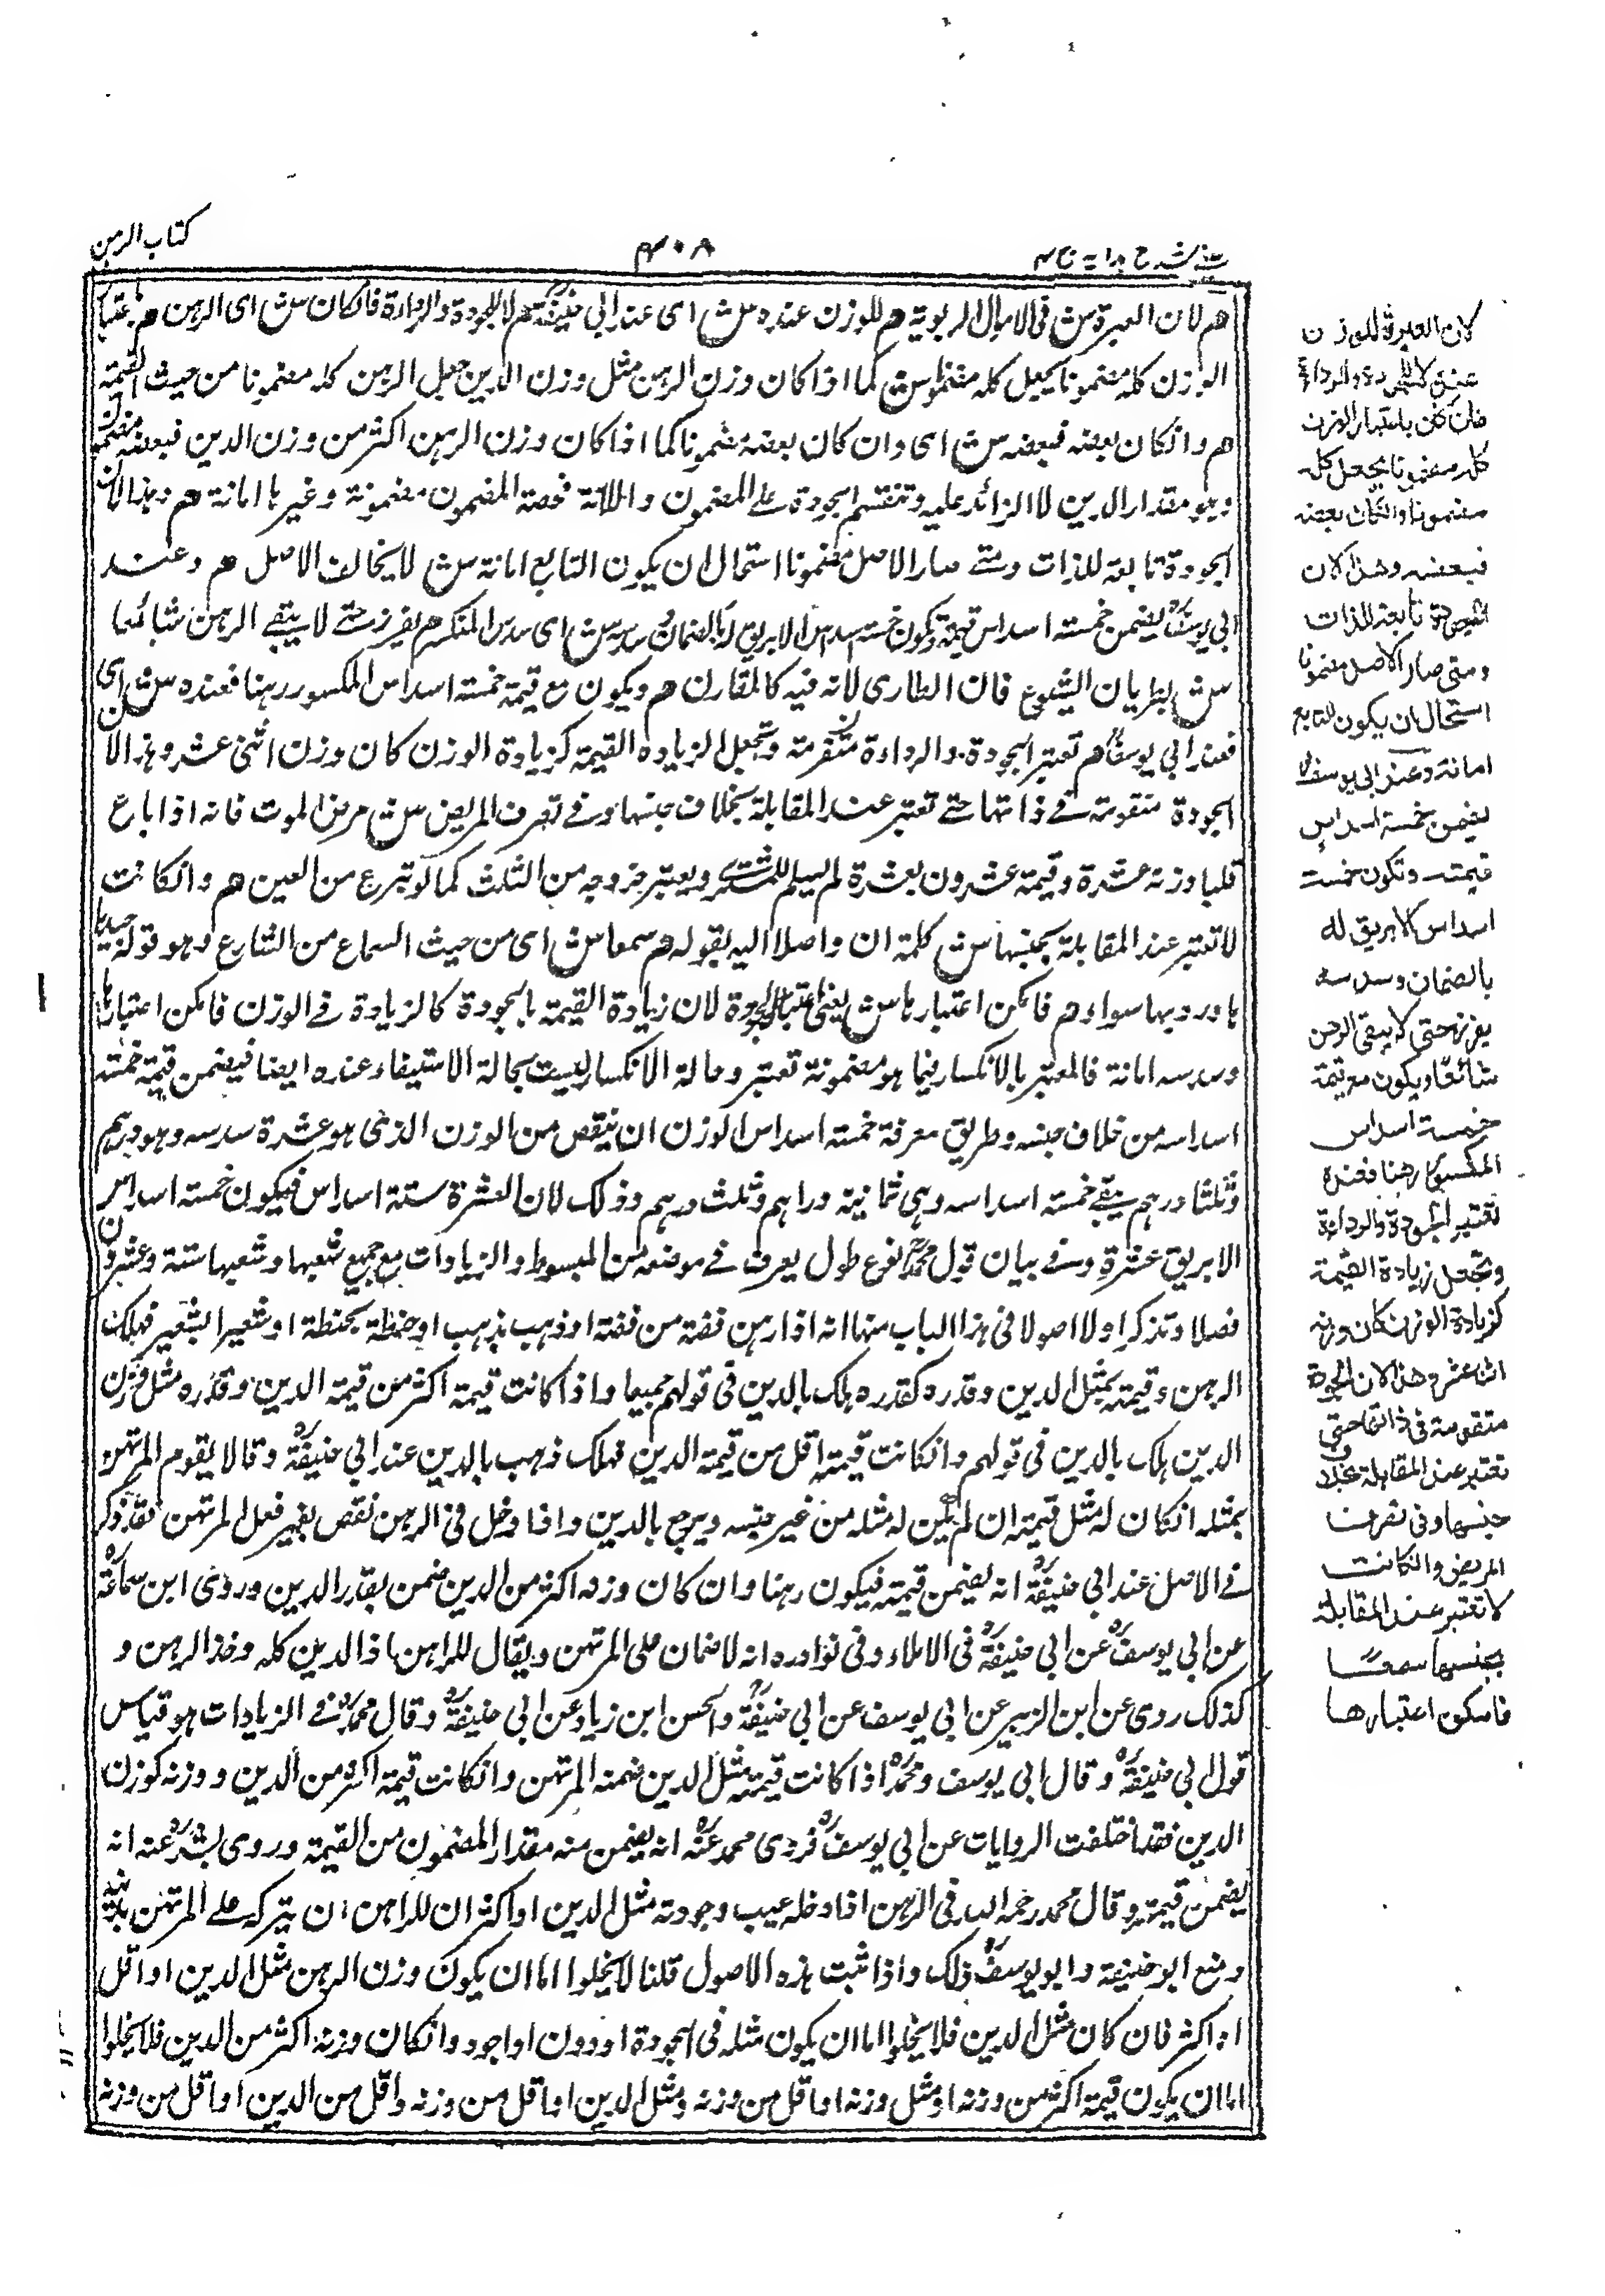 كتاب الرهن
٤٠٨
عيني شرح هداية ج ٤
هم لان العبرة س في الاموال الربوية هم للوزن عنده س اى عند ابي حنيفة هم لا للجودة والرداءة فان كان س اى الرهن هم باعتبار
الوزن كله مضمونا يجعل كله مضمونا س كما اذا كان وزن الرهن مثل وزن الدين جعل الرهن كله مضمونا من حيث القيمة
هم وانكان بعضه فبعضه س اى وان كان بعضه مضمونا كما اذا كان وزن الرهن اكثر من وزن الدين فبعضه مضمون
وهو مقدار الدين لا الزائد عليه وتنقسم الجودة على المضمون والامانة فحصة المضمون مضمونة وغيرها امانة هم وهذا لان
الجودة تابعة للذات ومتى صار الاصل مضمونا استحال ان يكون التابع امانة س لا يخالف الاصل هم وعند
ابي يوسف يضمن خمسة اسداس قيمته وتكون خمسة اسداس الابريق له بالضمان وسدسه س اى سدس المنكسر هم يفرز حتى لا يبقى الرهن شائعا
س لطريان الشيوع فان الطارى لانه فيه كالمقارن هم ويكون مع قيمة خمسة اسداس المكسور رهنا فعنده س اى
فعند ابي يوسف هم تعتبر الجودة والرداءة وتجعل الزيادة القيمة كزيادة الوزن كان وزن اثنى عشر وهذا لان
الجودة متقومة في ذاتها حتى تعتبر عند المقابلة بخلاف جنسها وفي تصرف المريض س مرض الموت فانه اذا باع
قلبا وزنه عشرة وقيمته عشرون بعشرة لم يسلم للمشترى ويعتبر خروجه من الثلث كما لو تبرع من العين هم وانكانت
لا تعتبر عند المقابلة بجنسها س كلمة ان واصلا اليه بقوله هم سمعا س اى من حيث السماع من الشارع وهو قوله جيدها
ورديها سواء هم فامكن اعتبارها س يعنى اعتبار الجودة لان زيادة القيمة بالجودة كالزيادة في الوزن فامكن اعتبارها
وسدسه امانة فالمعتبر بالانكسار فيما هو مضمونة تعتبر وحالة الانكسار ليست بحالة الاستيفاء عنده ايضا فيضمن قيمة خمسة
اسداسه من خلاف جنسه وطريق معرفة خمسة اسداس الوزن ان ينقص من الوزن الذى هو عشرة سدسه وهو درهم
وثلثا درهم يبقى خمسة اسداسه وهى ثمانية دراهم وثلث درهم وذلك لان العشرة ستة اسداس فيكون خمسة اسداس
الابريق عشرة وفي بيان قول محمد نوع طول يعرف في موضعه من المبسوط والزيادات مع جميع شعبها وشعبها ستة وعشرون
فصلا ونذكر اولا اصولا في هذا الباب منها انه اذا رهن فضة من فضة او ذهب بذهب او حنطة بحنطة او شعير الشعير فهلك
الرهن وقيمته بمثل الدين وقدره كقدره هلك بالدين في قولهم جميعا واذا كانت قيمة اكثر من قيمة الدين وقدره مثل وزن
الدين هلك بالدين في قولهم وانكانت قيمته اقل من قيمة الدين فهلك ذهب بالدين عند ابي حنيفة وقالا يقوم المرتهن
بمثله انكان له مثل قيمته ان لم يكن له مثله من غير جنسه ويرجع بالدين واذا دخل في الرهن نقص بغير فعل المرتهن فقد ذكر
في الاصل عند ابي حنيفة انه يضمن قيمته فيكون رهنا وان كان وزنه اكثر من الدين ضمن بقدر الدين وروى ابن سماعة
عن ابي يوسف عن ابي حنيفة في الاملاء وفي نوادره انه لا ضمان على المرتهن ويقال للراهن اد الدين كله وخذ الرهن و
كذلك روى عن ابن الزبير عن ابي يوسف عن ابي حنيفة والحسن ابن زياد عن ابي حنيفة وقال محمد في الزيادات هو قياس
قول ابي حنيفة وقال ابي يوسف ومحمد اذا كانت قيمته مثل الدين ضمنه المرتهن وانكانت قيمة اكثر من الدين ووزنه كوزن
الدين فقد اختلفت الروايات عن ابي يوسف فروى محمد عنه انه يضمن منه مقدار المضمون من القيمة وروى بشر عنه انه
يضمن قيمته وقال محمد رحمه الله في الرهن اذا دخله عيب وجودته مثل الدين او اكثر ان للراهن ان يتركه على المرتهن بدينه
ومنع ابو حنيفة وابو يوسف ذلك واذا ثبت هذه الاصول قلنا لا يخلوا اما ان يكون وزن الرهن مثل الدين او اقل
او اكثر فان كان مثل الدين فلا يخلوا اما ان يكون مثله في الجودة او دون او اجود وانكان وزنه اكثر من الدين فلا يخلوا
اما ان يكون قيمة اكثر من وزنه او مثل وزنه او اقل من وزنه ومثل الدين او اقل من وزنه واقل من الدين او اقل من وزنه
لان العبرة للوزن
عنده لا للجودة والرداءة
فان كان باعتبار الوزن
كله مضمونا يجعل كله
مضمونا وانكان بعضه
فبعضه وهذا لان
الجودة تابعة للذات
ومتى صار الاصل مضمونا
استحال ان يكون التابع
امانة وعند ابي يوسف
يضمن خمسة اسداس
قيمته وتكون خمسة
اسداس الابريق له
بالضمان وسدسه
يفرز حتى لا يبقى الرهن
شائعا ويكون مع قيمة
خمسة اسداس
المكسور رهنا فعنده
تعتبر الجودة والرداءة
وتجعل زيادة القيمة
كزيادة الوزن كان وزنه
اثنا عشر وهذا لان الجودة
متقومة في ذاتها حتى
تعتبر عند المقابلة بخلاف
جنسها وفي تصرف
المريض وان كانت
لا تعتبر عند المقابلة
بجنسها سمعا
فامكن اعتبارها